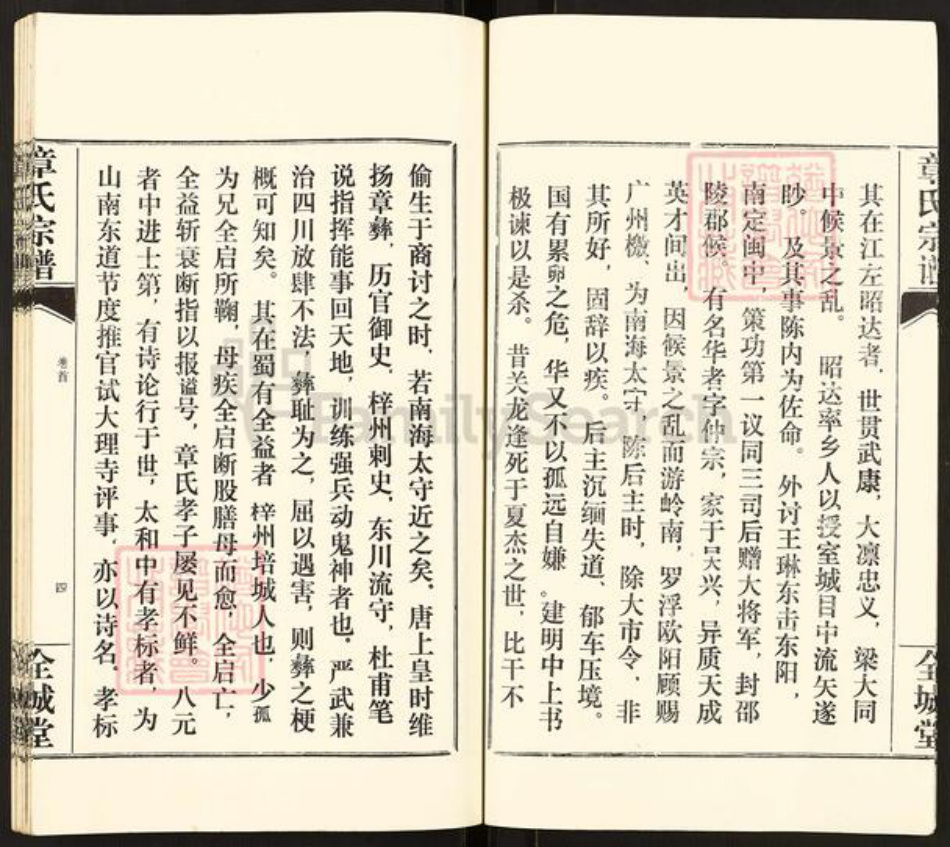 章氏宗谱
全城堂
其在江左昭达者，世贯武康，大凛忠义，梁大同
中候景之乱。昭达率乡人以授室城目中流矢遂
眇。及其事陈内为佐命。外讨王琳东击东阳，
南定闽中，策功第一议同三司后赠大将军，封邵
陵郡候、有名华者字仲宗，家于吴兴，异质天成
英才间出，因候景之乱而游岭南，罗浮欧阳顾赐
广州檄、为南海太守 陈后主时，除大市令、非
其所好，固辞以疾。后主沉缅失道、郁车压境。
国有累卵之危，华又不以孤远自嫌。建明中上书
极谏以是杀。昔关龙逢死于夏杰之世，比干不
偷生于商讨之时，若南海太守近之矣、唐上皇时维
扬章彝，历官御史，梓州刺史，东川流守，杜甫笔
说指挥能事回天地，训练强兵动鬼神者也，严武兼
治四川放肆不法，彝耻为之，屈以遇害，则彝之梗
概可知矣。其在蜀有全益者 梓州培城人也，少孤
为兄全启所鞠，母疾全启断股膳母而愈，全启亡，
全益斩衰断指以报谥号，章氏孝子屡见不鲜。八元
者中进士第，有诗论行于世，太和中有孝标者，为
山南东道节度推官试大理寺评事，亦以诗名，孝标
章氏宗谱
卷首
四
全城堂
FamilySearch